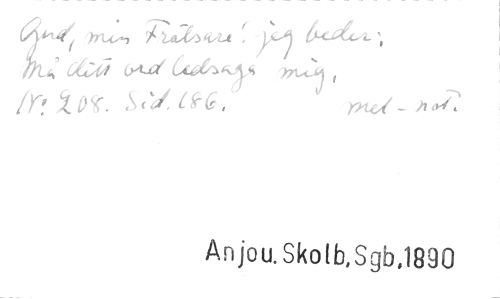 Gud, min Frälsare! jag beder:
Må ditt ord ledsaga mig.
No. 208. Sid. 186. mel-not.
Anjou. Skolb, Sgb, 1890